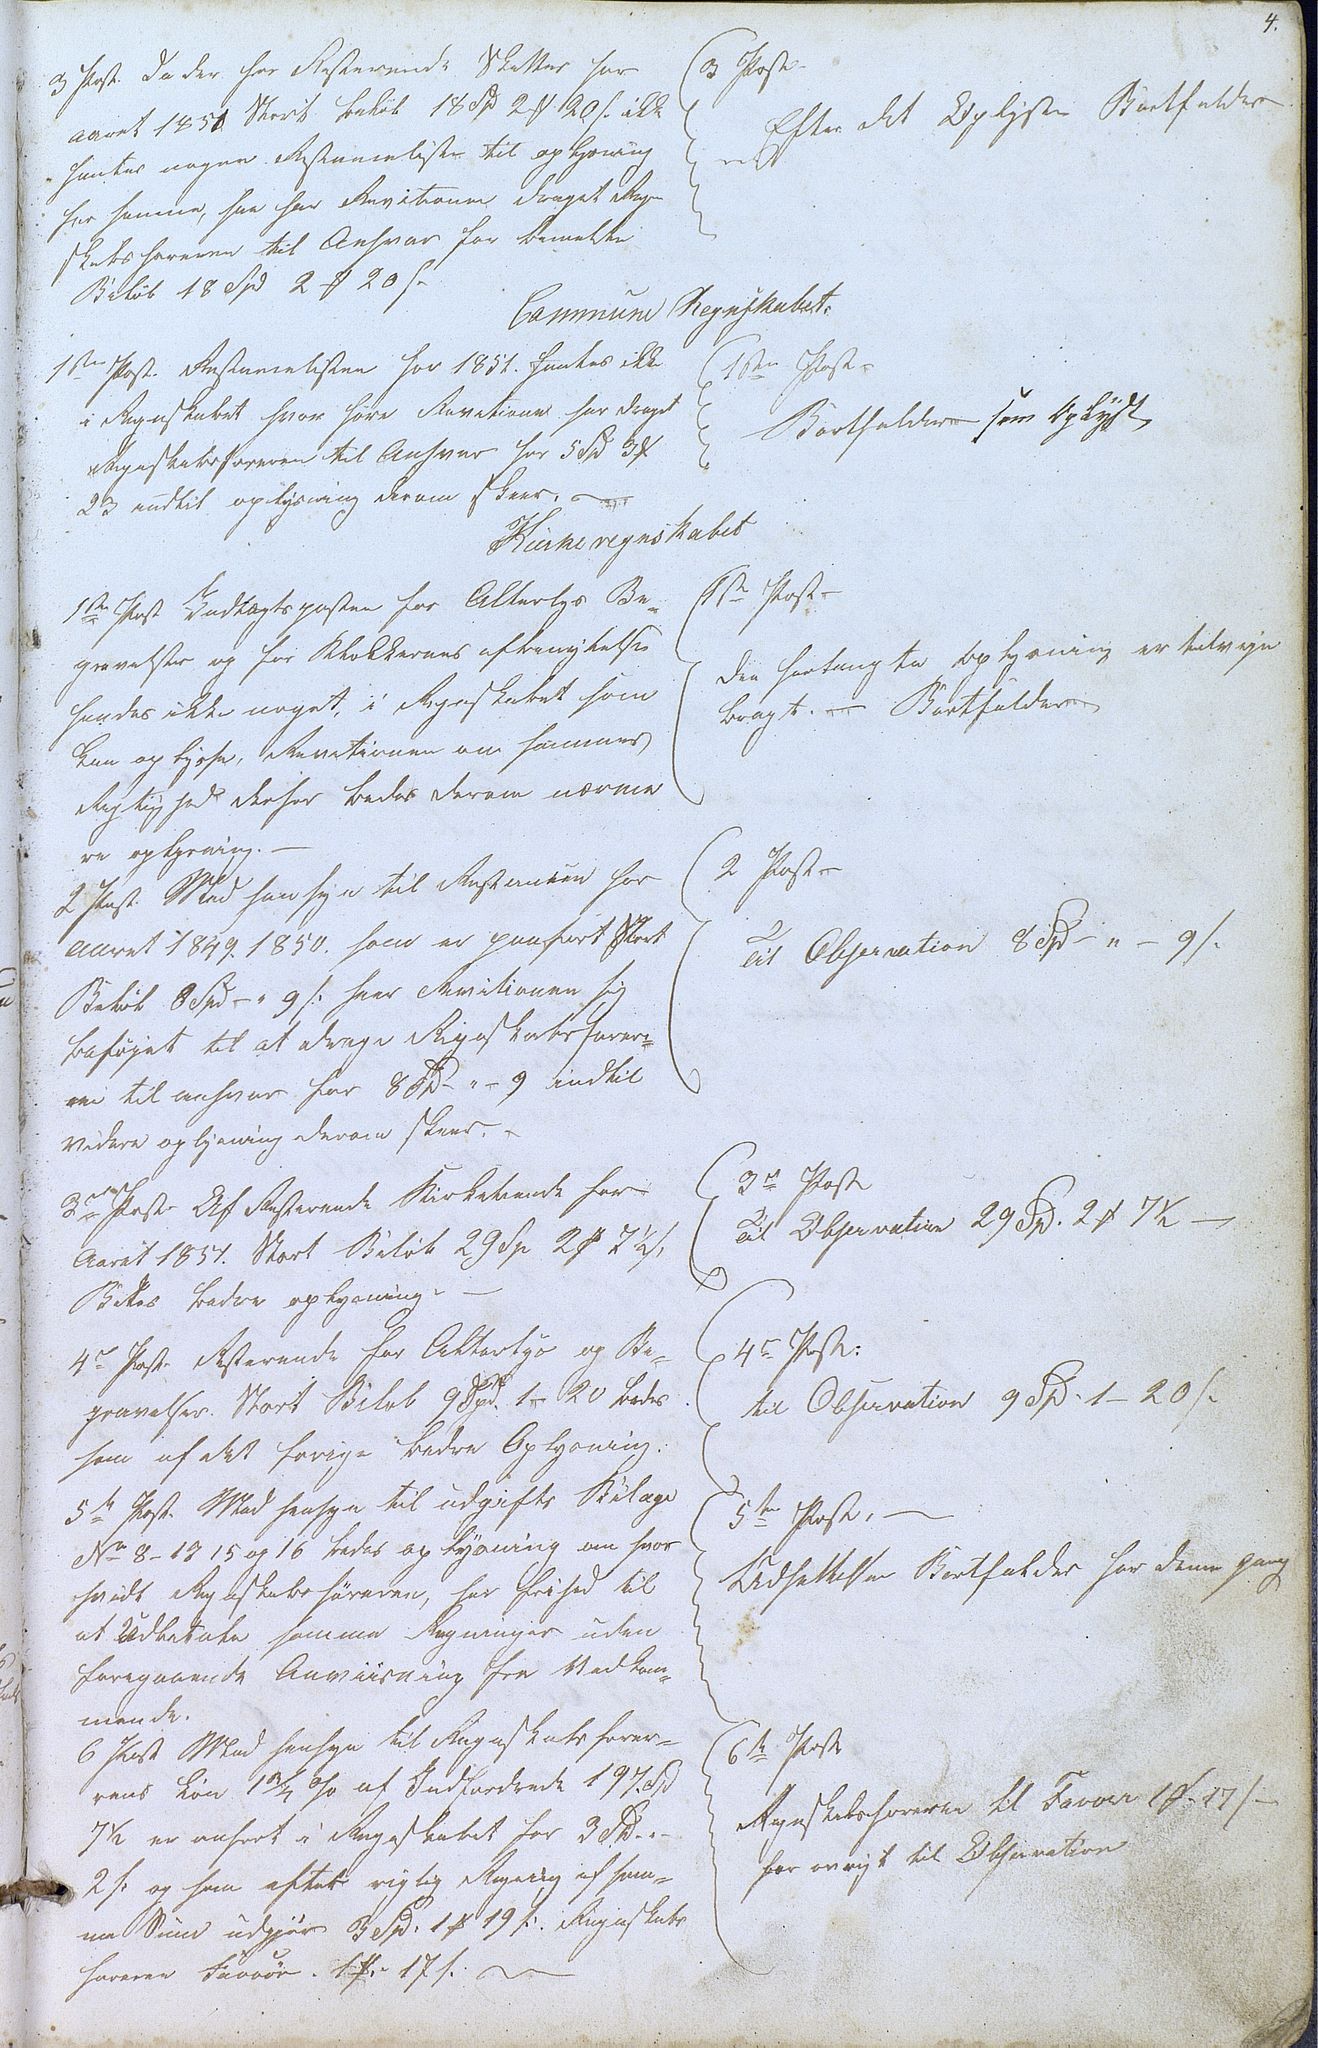 4.
3 Post. Da der for Resterende Skatter for
aaret 1851 Stort beløb 18 Spd 2 # 20 s. ikke
fandtes nogen Restanceliste til oplysning
for samme, saa har Revitionen draget Regn
skabsføreren til Ansvar for bemelte
Beløb 18 Spd 2 # 20 s.
3 Post
Efter det Oplyste Bortfalder
Commune Regnskabet.
1ste Post. Restancelisten for 1851. fandtes ikke
i Regnskabet hvor føre Revitionen har draget
Regnskabsføreren til Ansvar for 5 Spd 3 #
23 indtil oplysning derom skeer.
1ste Post
Bortfalder som Oplyst
Kirkeregnskabet
1ste Post Indtægtsposten for Alterlys Be-
gravelser og for Klokkernes afbenyttelse
fandtes ikke noget, i Regnskabet som
kan oplyse, Revitionen om sammes
Rigtighed derfor bedes derom nærme
re oplysning.
1ste Post
Den forlangte oplysning er tilveje
bragt. Bortfalder
2 Post. Med hensyn til Restancen for
aaret 1849. 1850. som er paaført Stort
Beløb 8 Spd - " 9 s. seer Revitionen sig
beføjet til at drage Regnskabsfører-
en til ansvar for 8 Spd - " - 9 indtil
videre oplysning derom skeer.
2 Post
Til Observation 8 Spd - " - 9 s.
3de Post Af Resterende Kirketiende for
Aaret 1851. Stort Beløb 29 Sp 2 # 7½ s.
Bedes bedre oplysning.
3de Post
Til Observation 29 Spd. 2 # 7½
4de Post. Resterende for Alterlys og Be-
gravelser. Stort Beløb 9 Spd. 1 - 20 bedes
som af det forige bedre Oplysning.
4de Post:
til Observation 9 Spd. 1 - 20 s.
5te Post. Med hensyn til udgifts Bilage
No 8-13 15 og 16 bedes oplysning om hvor
hvidt Regnskabsføreren, har frihed til
at Udbetale samme Regninger uden
foregaaende Anviisning fra Vedkom-
mende.
5te Post.
Udsættelsen Bortfalder for denne gang
6 Post Med hensyn til Regnskabsfører-
ens Løn 1½ % af Indfordrede 197 Spd
7½ er anført i Regnskabet for 3 Spd. " -
2 s. og som efter rigtig Regning af sam-
me Sum udgjør 3 Spd. 1 # 19 s. Regnskabs
føreren Favør. 1 #. 17 s.
6te Post
Regnskabsføreren til Favør 1 #. 17 s.
for øvrigt til Observation